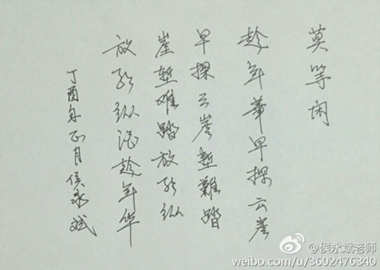 莫等闲
趁年華早探云崖
早探云崖塹難踏
崖塹难踏放能纵
放能纵酒趁年华
丁酉年正月侯永斌
@侯永斌老师
weibo.com/u/3602476340